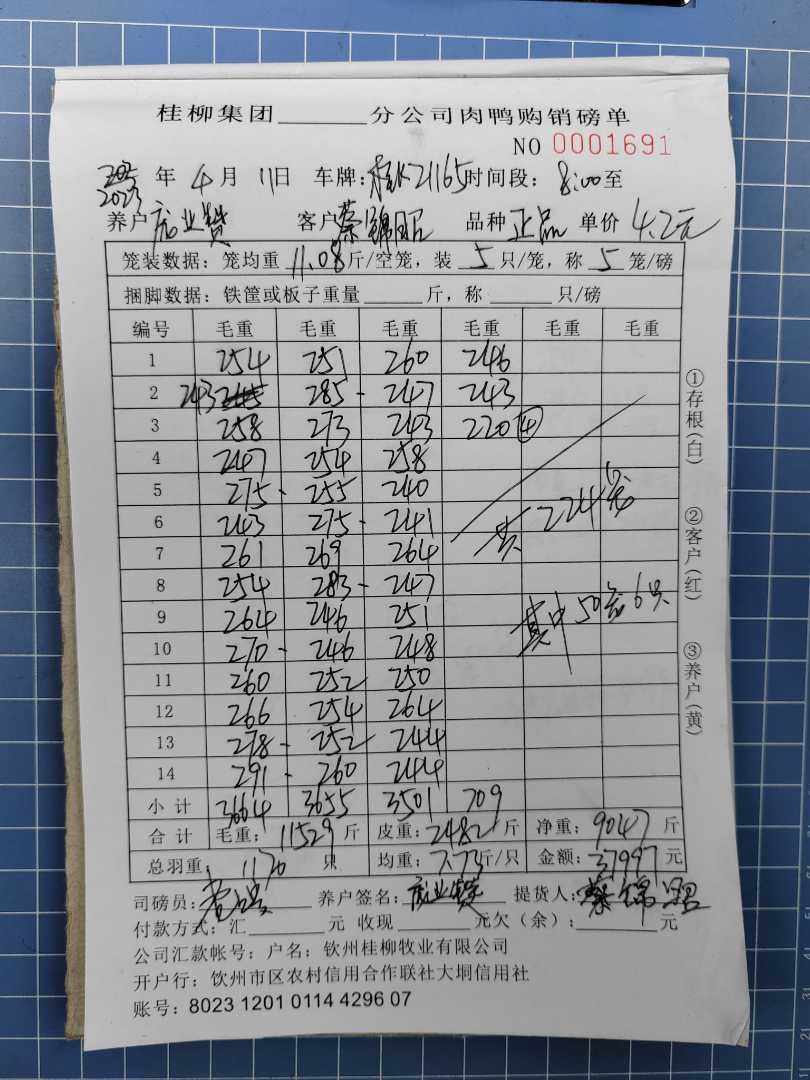 桂柳集团______分公司肉鸭购销磅单
NO 0001691
2023 年 4 月 11 日 车牌: 桂K21165 时间段: 8:00 至
养户 庞业贵 客户 蔡锦昭 品种 正品 单价 4.2元
笼装数据: 笼均重 11.08 斤/空笼, 装 5 只/笼, 称 5 笼/磅
捆脚数据: 铁筐或板子重量______斤, 称______只/磅
编号 毛重 毛重 毛重 毛重 毛重 毛重
1 254 251 260 246
2 243 285- 247 243
3 258 273 243 220 ④
4 247 254 258
5 275- 255 240
6 243 275- 241 共224笼
7 261 269 264
8 254 283- 247
9 264 246 251 其中50笼6只
10 270- 246 248
11 260 252 250
12 266 254 264
13 278- 252 244
14 291- 260 244
小计 3664 3655 3501 709
合计 毛重: 11529 斤 皮重: 2482 斤 净重: 9047 斤
总羽重 1170 只 均重: 7.73 斤/只 金额: 37997 元
司磅员: 养户签名: 庞业贵 提货人: 蔡锦昭
付款方式: 汇______元 收现______元欠(余):______元
公司汇款帐号: 户名: 钦州桂柳牧业有限公司
开户行: 钦州市区农村信用合作联社大垌信用社
账号: 8023 1201 0114 4296 07
①存根(白)
②客户(红)
③养户(黄)